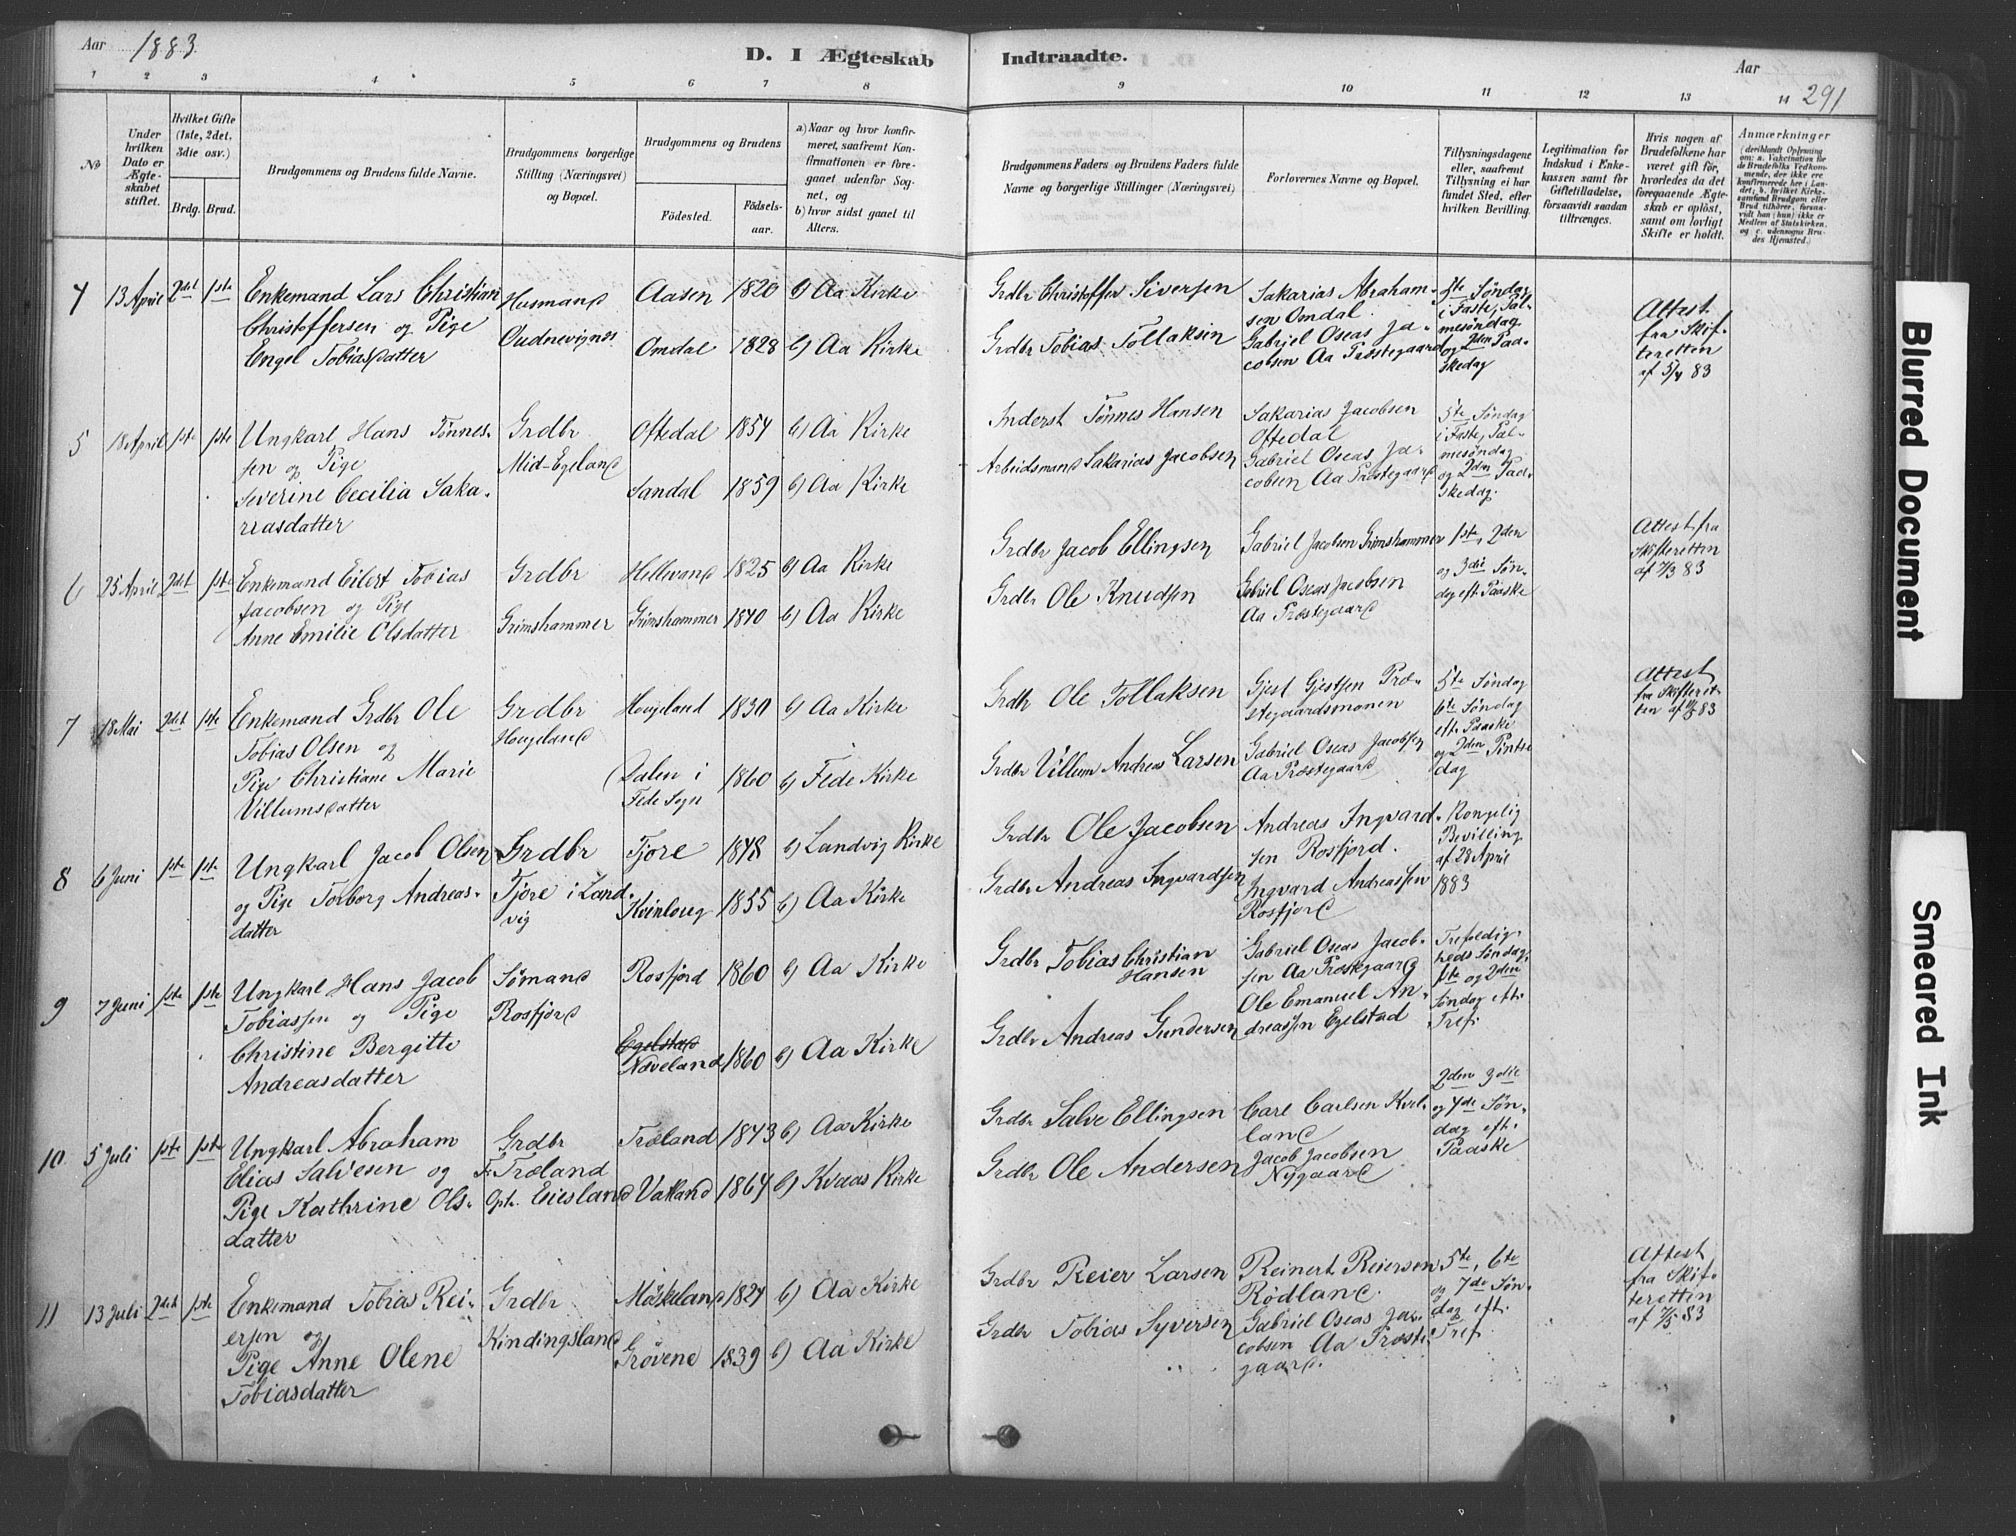 Aar 1883 D. I Ægteskab Indtraadte. Aar
1 2 3 4 5 6 7 8 9 10 11 12 13 14 291
No
Under hvilken Dato er Ægteskabet stiftet.
Hvilket Gifte (1ste, 2det, 3die osv.)
Brdg. Brud.
Brudgommens og Brudens fulde Navne.
Brudgommens borgerlige Stilling (Næringsvei) og Bopæl.
Brudgommens og Brudens
Fødested. Fødselsaar.
a) Naar og hvor konfirmeret, saafremt Konfirmationen er foregaaet udenfor Sognet, og
b) hvor sidst gaaet til Alters.
Brudgommens Faders og Brudens Faders fulde Navne og borgerlige Stillinger (Næringsvei)
Forlovernes Navne og Bopæl.
Tillysningsdagene eller, saafremt Tillysning ei har fundet Sted, efter hvilken Bevilling.
Legitimation for Indskud i Enkekassen samt for Giftetilladelse, forsaavidt saadan tiltrænges.
Hvis nogen af Brudefolkene har været gift før, hvorledes da det foregaaende Ægteskab er opløst, samt om lovligt Skifte er holdt.
Anmærkninger
4 13 April 2det 1ste
Enkemand Lars Christian
Christoffersen og Pige
Engel Tobiasdatter
Husmand
Aasen 1820 b) Aa Kirke
Omdal 1828 b) Aa Kirke
Grdbr Christoffer Siversen
Grdbr Tobias Tollaksen
Sakarias Abraham-
sen Omdal
Gabriel Oseas Ja-
cobsen Aa Præstegaard
5te Søndag
i Faste, Pal-
mesøndag
og 2den Paa-
skedag
Attest
fra Skif-
teretten
af 5/4 83
5 18 April 1ste 1ste
Ungkarl Hans Tønnes-
sen og Pige
Severine Cecilia Saka-
riasdatter
Grdbr
Mid-Egeland
Oftedal 1854 b) Aa Kirke
Sandal 1859 b) Aa Kirke
Inderst Tønnes Hansen
Arbeidsmand Sakarias Jacobsen
Sakarias Jacobsen
Oftedal
Gabriel Oseas Ja-
cobsen Aa Præstegaard
5te Søndag
i Faste, Pal-
mesøndag
og 2den Paa-
skedag.
6 25 April 2det 1ste
Enkemand Eilert Tobias
Jacobsen og Pige
Anne Emilie Olsdatter
Grdbr
Grimshammer
Hellevand 1825 b) Aa Kirke
Grimshammer 1840 b) Aa Kirke
Grdbr Jacob Ellingsen
Grdbr Ole Knudsen
Gabriel Jacobsen Grimshammer
Gabriel Oseas Jacobsen
Aa Præstegaard
1ste, 2den
og 3die Søn-
dag eft Paaske
Attest fra
Skifteretten
af 7/3 83
7 18 Mai 2det 1ste
Enkemand Grdbr Ole
Tobias Olsen og
Pige Christiane Marie
Villumsdatter
Grdbr
Hougeland
Hougeland 1830 b) Aa Kirke
Dalen i
Fede Sogn 1860 b) Fede Kirke
Grdbr Ole Tollaksen
Grdbr Villum Andreas Larsen
Gjest Gjestsen Præ-
stegaardsmonen
Gabriel Oseas Jacobsen
Aa Præstegaard
5te Søndag
6te Søndag
eft. Paaske
og 2den Pintse
dag
Attest
fra Skifteret-
ten af 83
8 6 Juni 1ste 1ste
Ungkarl Jacob Olsen
og Pige Torborg Andreas-
datter
Grdbr
Tjore i Land
vig
Tjore 1848 b) Landvig Kirke
Kvinlaug 1855 b) Aa Kirke
Grdbr Ole Jacobsen
Grdbr Andreas Ingvardsen
Andreas Ingvard-
sen Rosfjord.
Ingvard Andreassen
Rosfjord
Kongelig
Bevilling
af 28 April
1883
9 7 Juni 1ste 1ste
Ungkarl Hans Jacob
Tobiassen og Pige
Christine Bergitte
Andreasdatter
Sømand
Rosfjord
Rosfjord 1860 b) Aa Kirke
Egelstad
Næveland 1860 b) Aa Kirke
Grdbr Tobias Christian
Hansen
Grdbr Andreas Gundersen
Gabriel Oseas Jacob-
sen Aa Præstegaard
Ole Emanuel An-
dreassen Egelstad
Trefoldig-
heds Søndag,
1ste og 2den
Søndag eft.
Tref.
10 5 Juli 1ste 1ste
Ungkarl Abraham
Elias Salvesen og
Pige Kathrine Ols-
datter
Grdbr
F. Træland
Oph. Eiesland
Træland 1843 b) Aa Kirke
Vatland 1864 b) Kvaas Kirke
Grdbr Salve Ellingsen
Grdbr Ole Andersen
Carl Carlsen Kvel-
land
Jacob Jacobsen
Nygaard
2den 3die
og 4de Søn-
dag eft.
Paaske
11 13 Juli 2det 1ste
Enkemand Tobias Rei-
ersen og
Pige Anne Olene
Tobiasdatter
Grdbr
Kindingsland
Møskeland 1824 b) Aa Kirke
Grøvene 1839 b) Aa Kirke
Grdbr Reier Larsen
Grdbr Tobias Syversen
Reinert Reiersen
Rødland.
Gabriel Oseas Ja-
cobsen Aa Præste-
gaard.
5te, 6te
og 7de Søn-
dag eft.
Tref.
Attest
fra Skif-
teretten
af 7/5 83
Blurred Document
Smeared Ink